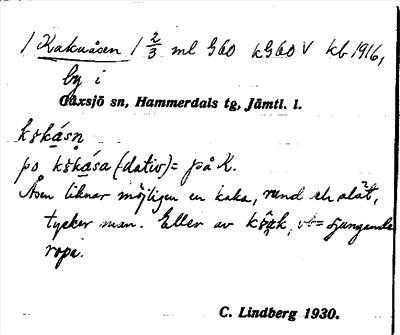 / Kakuåsen / 2/3 ml G60 kG60V kb 1916,
by i
Gåxsjö sn, Hammerdals tg, Jämtl. l.
kskásn
po kskása (-dativ) = på K.
Åsen liknar möjligen en kaka, rund och slät,
tycker man. Eller av = sjungande
ropa.
C. Lindberg 1930.